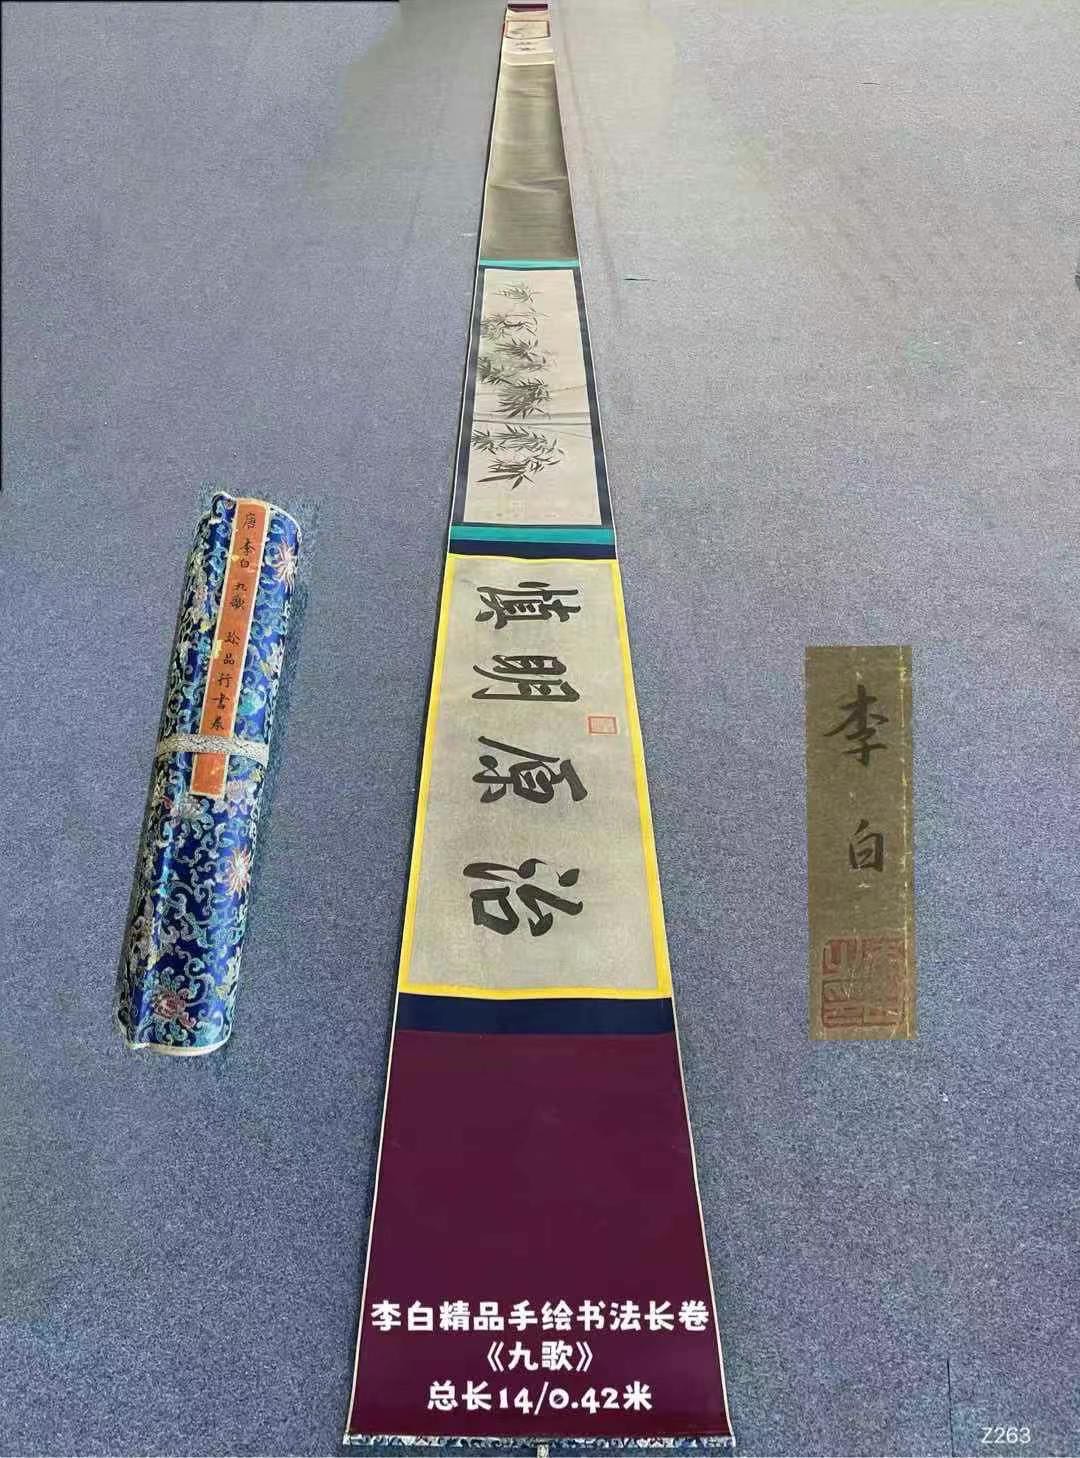 唐 李白 九歌 珍品行書卷
慎
明
原
治
李白
李白精品手绘书法长卷
《九歌》
总长14/0.42米
Z263